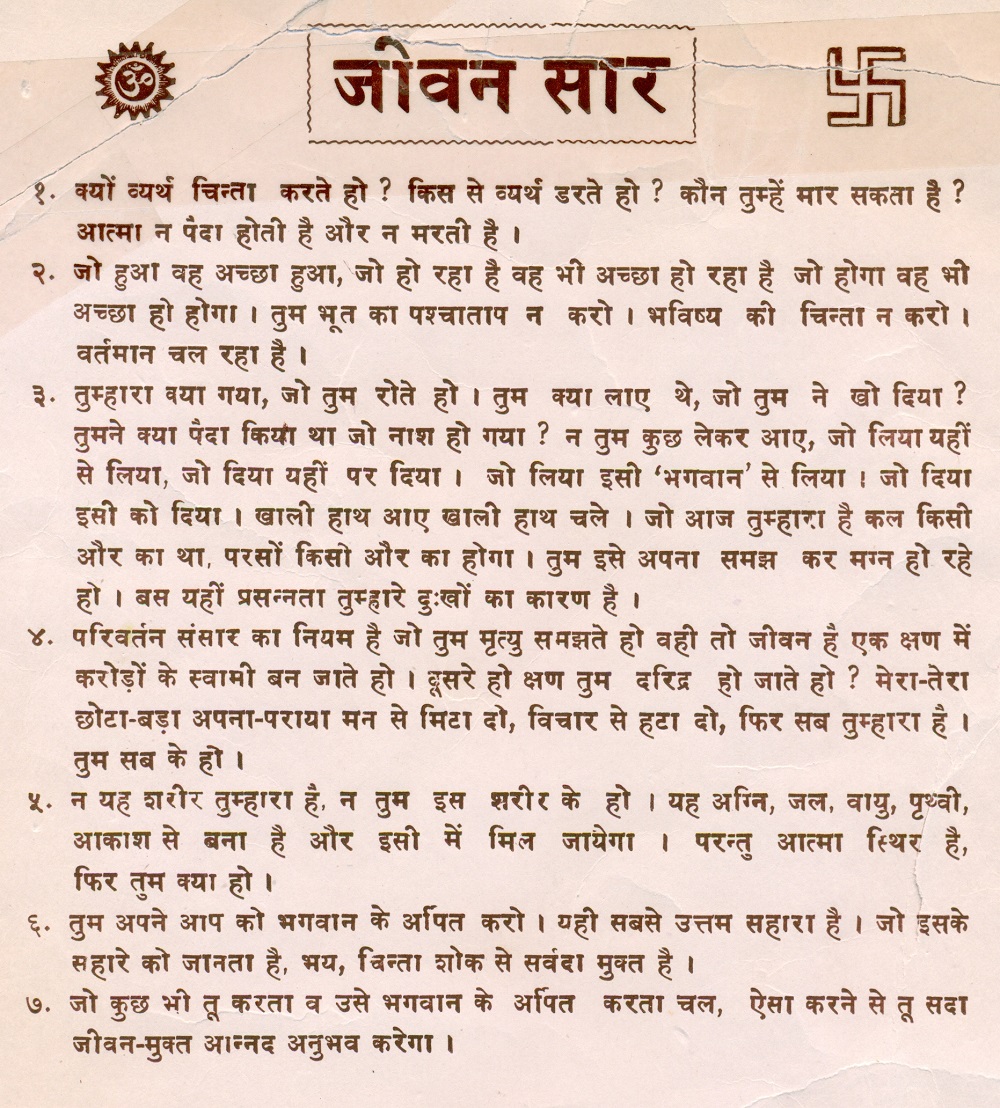 ॐ
जीवन सार
१. क्यों व्यर्थ चिन्ता करते हो ? किस से व्यर्थ डरते हो ? कौन तुम्हें मार सकता है ?
आत्मा न पैदा होती है और न मरती है ।
२. जो हुआ वह अच्छा हुआ, जो हो रहा है वह भी अच्छा हो रहा है जो होगा वह भी
अच्छा हो होगा । तुम भूत का पश्चाताप न करो । भविष्य की चिन्ता न करो ।
वर्तमान चल रहा है ।
३. तुम्हारा क्या गया, जो तुम रोते हो । तुम क्या लाए थे, जो तुम ने खो दिया ?
तुमने क्या पैदा किया था जो नाश हो गया ? न तुम कुछ लेकर आए, जो लिया यहीं
से लिया, जो दिया यहीं पर दिया । जो लिया इसी ‘भगवान’ से लिया । जो दिया
इसी को दिया । खाली हाथ आए खाली हाथ चले । जो आज तुम्हारा है कल किसी
और का था, परसों किसी और का होगा । तुम इसे अपना समझ कर मग्न हो रहे
हो । बस यहीं प्रसन्नता तुम्हारे दुःखों का कारण है ।
४. परिवर्तन संसार का नियम है जो तुम मृत्यु समझते हो वही तो जीवन है एक क्षण में
करोड़ों के स्वामी बन जाते हो । दूसरे हो क्षण तुम दरिद्र हो जाते हो ? मेरा-तेरा
छोटा-बड़ा अपना-पराया मन से मिटा दो, विचार से हटा दो, फिर सब तुम्हारा है ।
तुम सब के हो ।
५. न यह शरीर तुम्हारा है, न तुम इस शरीर के हो । यह अग्नि, जल, वायु, पृथ्वी,
आकाश से बना है और इसी में मिल जायेगा । परन्तु आत्मा स्थिर है,
फिर तुम क्या हो ।
६. तुम अपने आप को भगवान के अर्पित करो । यही सबसे उत्तम सहारा है । जो इसके
सहारे को जानता है, भय, चिन्ता शोक से सर्वदा मुक्त है ।
७. जो कुछ भी तू करता व उसे भगवान के अर्पित करता चल, ऐसा करने से तू सदा
जीवन-मुक्त आन्नद अनुभव करेगा ।